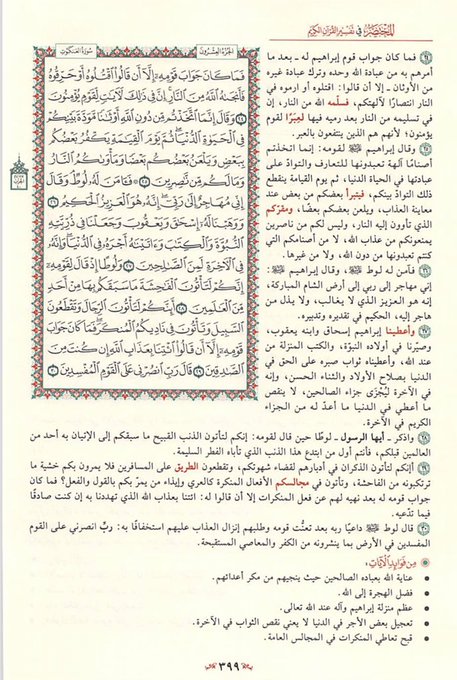 المختصر في تفسير القرآن الكريم
الجزء العشرون
سورة العنكبوت
فَمَا كَانَ جَوَابَ قَوْمِهِ إِلَّا أَن قَالُوا اقْتُلُوهُ أَوْ حَرِّقُوهُ
فَأَنجَاهُ اللَّهُ مِنَ النَّارِ إِنَّ فِي ذَلِكَ لَآيَاتٍ لِّقَوْمٍ يُؤْمِنُونَ
٢٤ وَقَالَ إِنَّمَا اتَّخَذْتُم مِّن دُونِ اللَّهِ أَوْثَانًا مَّوَدَّةَ بَيْنِكُمْ
فِي الْحَيَاةِ الدُّنْيَا ثُمَّ يَوْمَ الْقِيَامَةِ يَكْفُرُ بَعْضُكُم
بِبَعْضٍ وَيَلْعَنُ بَعْضُكُم بَعْضًا وَمَأْوَاكُمُ النَّارُ
وَمَا لَكُم مِّن نَّاصِرِينَ ٢٥ فَآمَنَ لَهُ لُوطٌ وَقَالَ
إِنِّي مُهَاجِرٌ إِلَى رَبِّي إِنَّهُ هُوَ الْعَزِيزُ الْحَكِيمُ ٢٦
وَوَهَبْنَا لَهُ إِسْحَاقَ وَيَعْقُوبَ وَجَعَلْنَا فِي ذُرِّيَّتِهِ
النُّبُوَّةَ وَالْكِتَابَ وَآتَيْنَاهُ أَجْرَهُ فِي الدُّنْيَا وَإِنَّهُ
فِي الْآخِرَةِ لَمِنَ الصَّالِحِينَ ٢٧ وَلُوطًا إِذْ قَالَ لِقَوْمِهِ
إِنَّكُمْ لَتَأْتُونَ الْفَاحِشَةَ مَا سَبَقَكُم بِهَا مِنْ أَحَدٍ
مِّنَ الْعَالَمِينَ ٢٨ أَئِنَّكُمْ لَتَأْتُونَ الرِّجَالَ وَتَقْطَعُونَ
السَّبِيلَ وَتَأْتُونَ فِي نَادِيكُمُ الْمُنكَرَ فَمَا كَانَ جَوَابَ
قَوْمِهِ إِلَّا أَن قَالُوا ائْتِنَا بِعَذَابِ اللَّهِ إِن كُنتَ مِنَ
الصَّادِقِينَ ٢٩ قَالَ رَبِّ انصُرْنِي عَلَى الْقَوْمِ الْمُفْسِدِينَ ٣٠
٢٤ فما كان جواب قوم إبراهيم له ـ بعد ما
أمرهم به من عبادة الله وحده وترك عبادة غيره
من الأوثان ـ إلا أن قالوا: اقتلوه أو ارموه في
النار انتصارًا لآلهتكم، فسلَّمه الله من النار، إن
في تسليمه من النار بعد رميه فيها لعِبَرًا لقوم
يؤمنون؛ لأنهم هم الذين ينتفعون بالعبر.
٢٥ وقال إبراهيم ﷺ لقومه: إنما اتخذتم
أصنامًا آلهة تعبدونها للتعارف والتوادّ على
عبادتها في الحياة الدنيا، ثم يوم القيامة ينقطع
ذلك التوادّ بينكم، فيتبرأ بعضكم من بعض عند
معاينة العذاب، ويلعن بعضكم بعضًا، ومقرّكم
الذي تأوون إليه النار، وليس لكم من ناصرين
يمنعونكم من عذاب الله، لا من أصنامكم التي
كنتم تعبدونها من دون الله، ولا من غيرها.
٢٦ فآمن له لوط ﷺ، وقال إبراهيم ﷺ:
إني مهاجر إلى ربي إلى أرض الشام المباركة،
إنه هو العزيز الذي لا يغالب، ولا يذل من
هاجر إليه، الحكيم في تقديره وتدبيره.
٢٧ وأعطينا إبراهيم إسحاق وابنه يعقوب،
وصيّرنا في أولاده النبوّة، والكتب المنزلة من
عند الله، وأعطيناه ثواب صبره على الحق في
الدنيا بصلاح الأولاد والثناء الحسن، وإنه
في الآخرة ليُجْزَى جزاء الصالحين، لا ينقص
ما أعطي في الدنيا ما أعدّ له من الجزاء
الكريم في الآخرة.
٢٨ واذكر ـ أيها الرسول ـ لوطًا حين قال لقومه: إنكم لتأتون الذنب القبيح ما سبقكم إلى الإتيان به أحد من
العالمين قبلكم، فأنتم أول من ابتدع هذا الذنب الذي تأباه الفطر السليمة.
٢٩ أإنكم لتأتون الذكران في أدبارهم لقضاء شهوتكم، وتقطعون الطريق على المسافرين فلا يمرون بكم خشية ما
ترتكبونه من الفاحشة، وتأتون في مجالسكم الأفعال المنكرة كالعري وإيذاء من يمرّ بكم بالقول والفعل؟ فما كان
جواب قومه له بعد نهيه لهم عن فعل المنكرات إلا أن قالوا له: ائتنا بعذاب الله الذي تهددنا به إن كنت صادقًا
فيما تدّعيه.
٣٠ قال لوط ﷺ داعيًا ربه بعد تعنّت قومه وطلبهم إنزال العذاب عليهم استخفافًا به: ربِّ انصرني على القوم
المفسدين في الأرض بما ينشرونه من الكفر والمعاصي المستقبحة.
من فوائد الآيات
• عناية الله بعباده الصالحين حيث ينجيهم من مكر أعدائهم.
• فضل الهجرة إلى الله.
• عظم منزلة إبراهيم وآله عند الله تعالى.
• تعجيل بعض الأجر في الدنيا لا يعني نقص الثواب في الآخرة.
• قبح تعاطي المنكرات في المجالس العامة.
٣٩٩